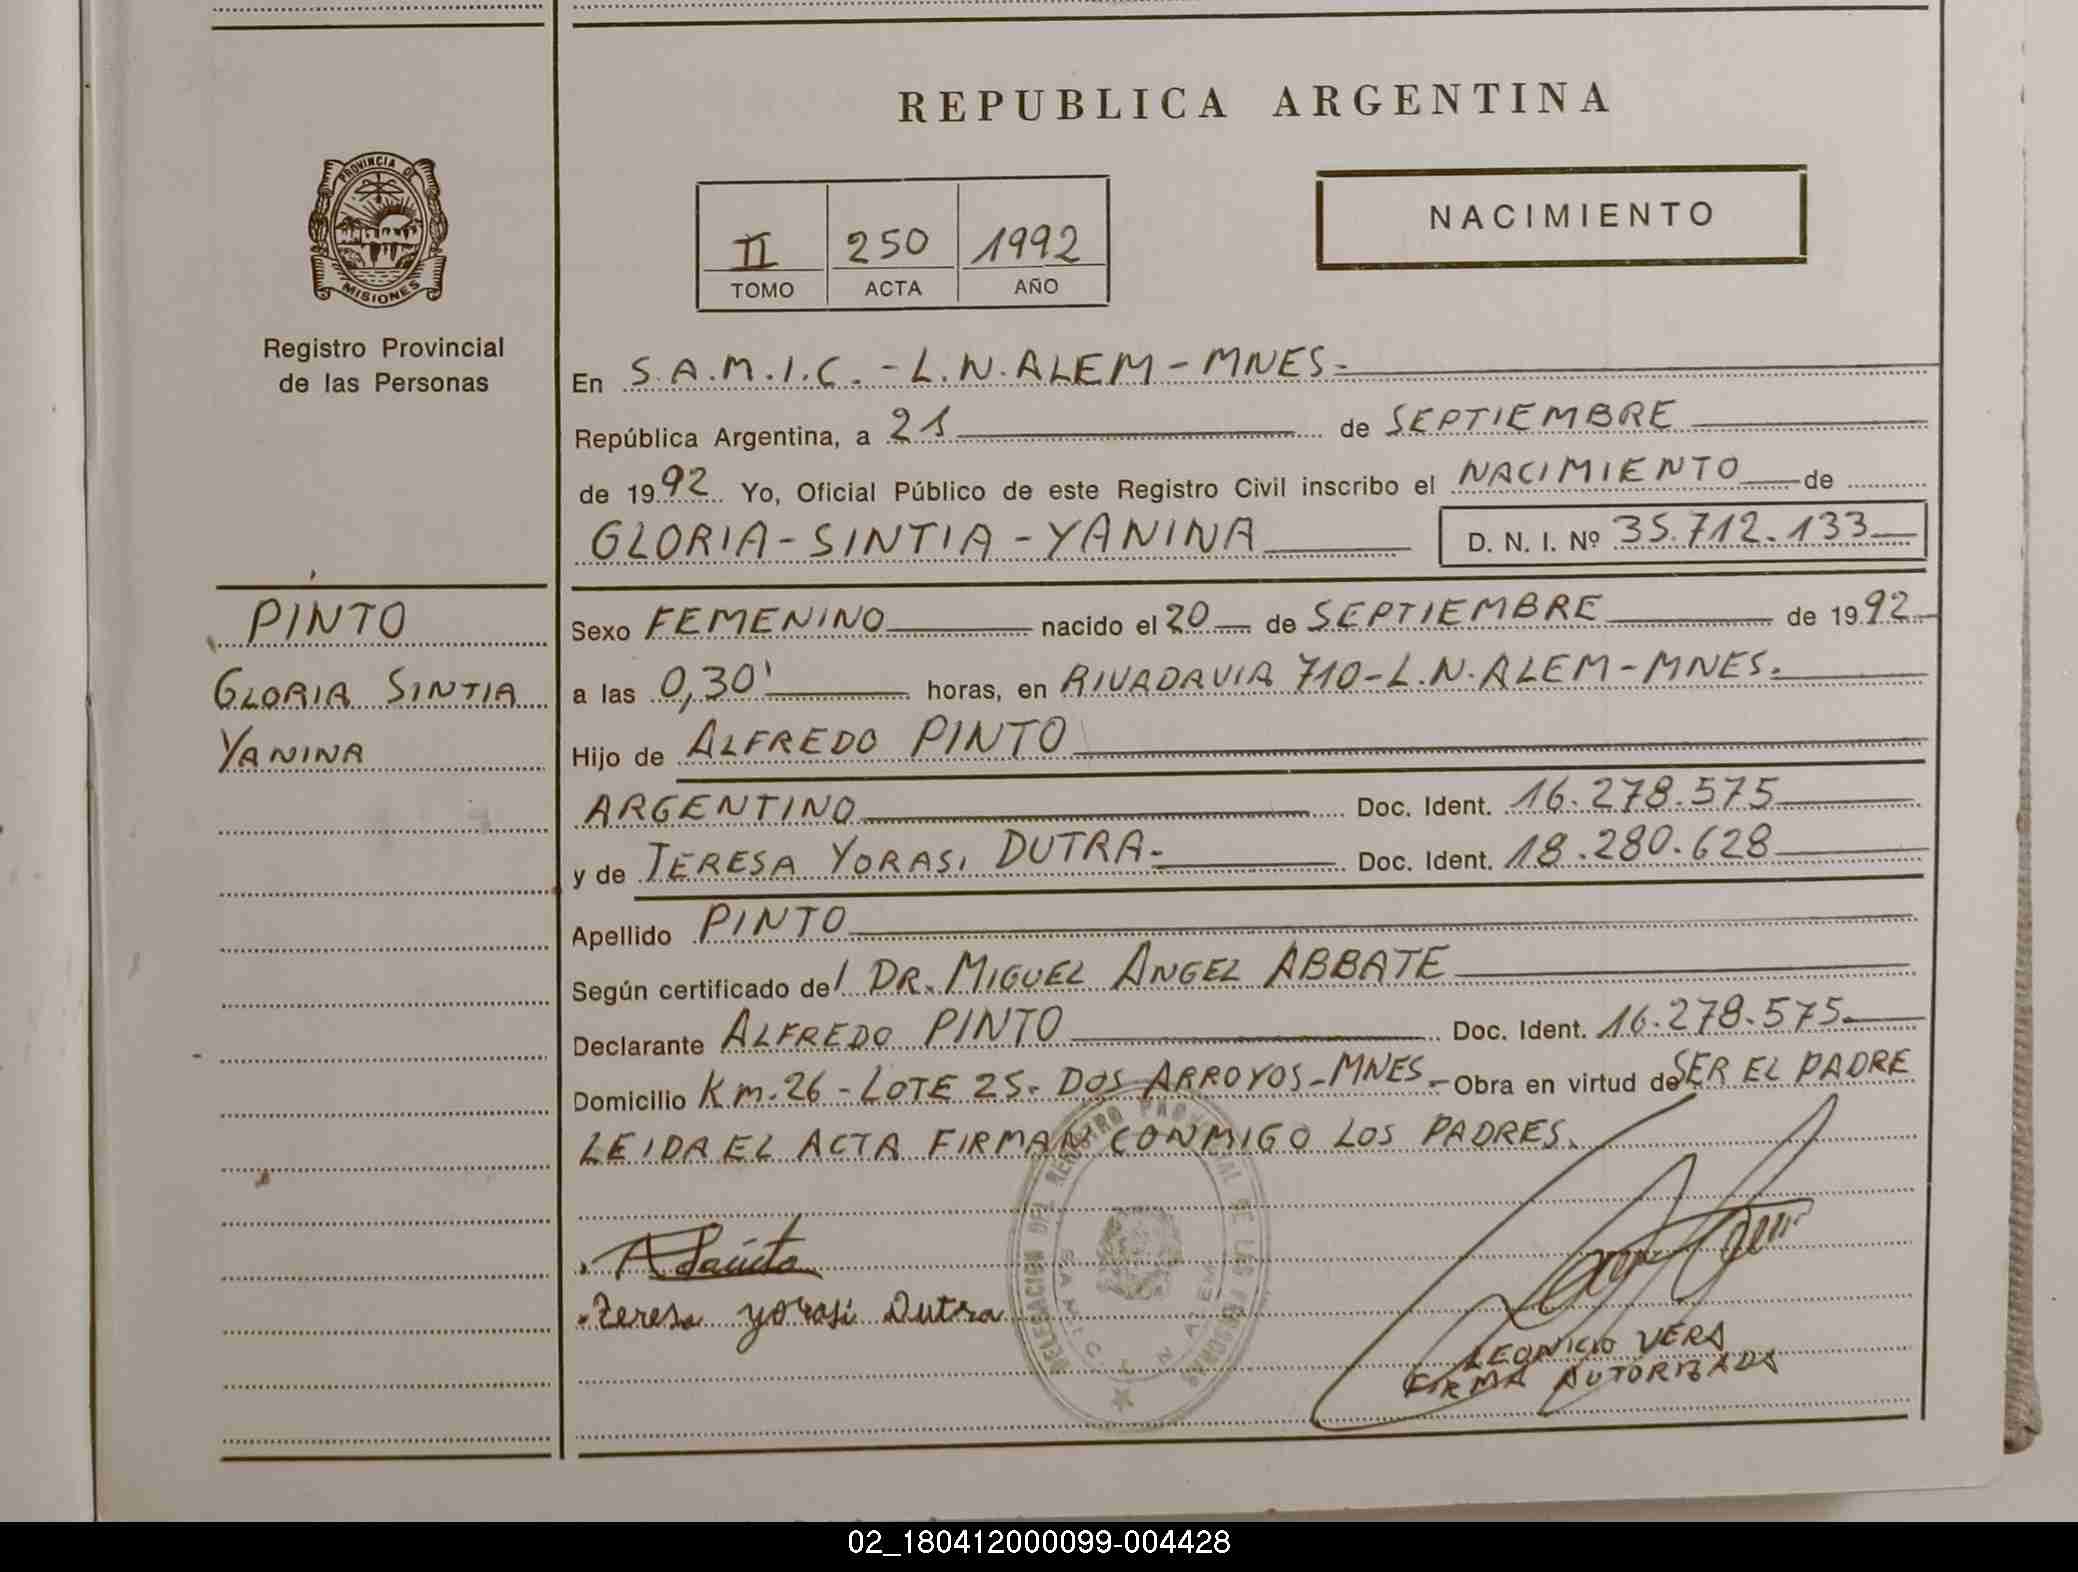 REPUBLICA ARGENTINA
PROVINCIA DE
MISIONES
Registro Provincial
de las Personas
II 250 1992
TOMO ACTA AÑO
NACIMIENTO
En S.A.M.I.C. - L.N. ALEM - MNES.
República Argentina, a 21 de SEPTIEMBRE
de 1992 Yo, Oficial Público de este Registro Civil inscribo el NACIMIENTO de
GLORIA - SINTIA - YANINA D. N. I. Nº 35.712.133
PINTO
GLORIA SINTIA
YANINA
Sexo FEMENINO nacido el 20 de SEPTIEMBRE de 1992
a las 0,30' horas, en RIVADAVIA 710 - L.N. ALEM - MNES.
Hijo de ALFREDO PINTO
ARGENTINO Doc. Ident. 16.278.575
y de TERESA YORASI DUTRA. Doc. Ident. 18.280.628
Apellido PINTO
Según certificado del DR. MIGUEL ANGEL ABBATE
Declarante ALFREDO PINTO Doc. Ident. 16.278.575
Domicilio Km. 26 - LOTE 25 - DOS ARROYOS - MNES. Obra en virtud de SER EL PADRE
LEIDA EL ACTA FIRMAN CONMIGO LOS PADRES.
DELEGACION DEL REGISTRO PROVINCIAL DE LAS PERSONAS
SAMIC L N ALEM
Teresa yorasi Dutra
LEONICIO VERA
FIRMA AUTORIZADA
02_180412000099-004428